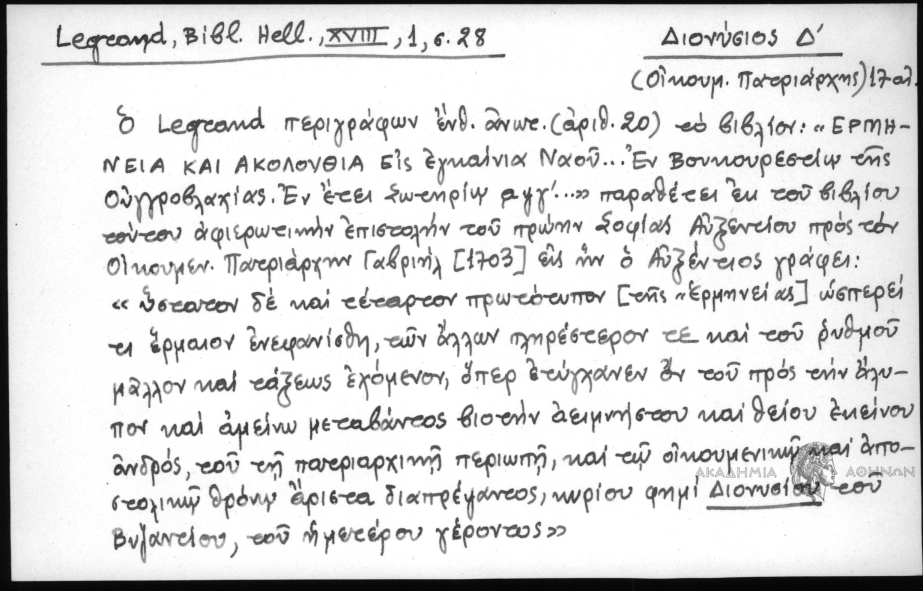 Legrand, Bibl. Hell., XVIII, 1, σ. 28
Διονύσιος Δ'
(Οἰκουμ. Πατριάρχης) 17 αἰ.
Ὁ Legrand περιγράφων ἐνθ. ἀνωτ. (ἀριθ. 20) τὸ βιβλίον: «ΕΡΜΗ-
ΝΕΙΑ ΚΑΙ ΑΚΟΛΟΥΘΙΑ Εἰς ἐγκαίνια Ναοῦ... Ἐν Βουκουρεστίῳ τῆς
Οὐγγροβλαχίας. Ἐν ἔτει Σωτηρίῳ αψγ'...» παραθέτει ἐκ τοῦ βιβλίου
τούτου ἀφιερωτικὴν ἐπιστολὴν τοῦ πρώην Σοφίας Αὐξεντίου πρὸς τὸν
Οἰκουμεν. Πατριάρχην Γαβριὴλ [1703] εἰς ἣν ὁ Αὐξέντιος γράφει:
«ὕστατον δὲ καὶ τέταρτον πρωτότυπον [τῆς «Ἑρμηνείας] ὡσπερεὶ
τι ἕρμαιον ἐνεφανίσθη, τῶν ἄλλων πληρέστερον τε καὶ τοῦ ῥυθμοῦ
μᾶλλον καὶ τάξεως ἐχόμενον, ὅπερ ἐτύγχανεν ὂν τοῦ πρὸς τὴν ἄλυ-
πον καὶ ἀμείνω μεταβάντος βιοτὴν ἀειμνήστου καὶ θείου ἐκείνου
ἀνδρός, τοῦ τῇ πατριαρχικῇ περιωπῇ, καὶ τῷ οἰκουμενικῷ καὶ ἀπο-
στολικῷ θρόνῳ ἄριστα διαπρέψαντος, κυρίου φημὶ Διονυσίου τοῦ
Βυζαντίου, τοῦ ἡμετέρου γέροντος»
ΑΚΑΔΗΜΙΑ ΑΘΗΝΩΝ